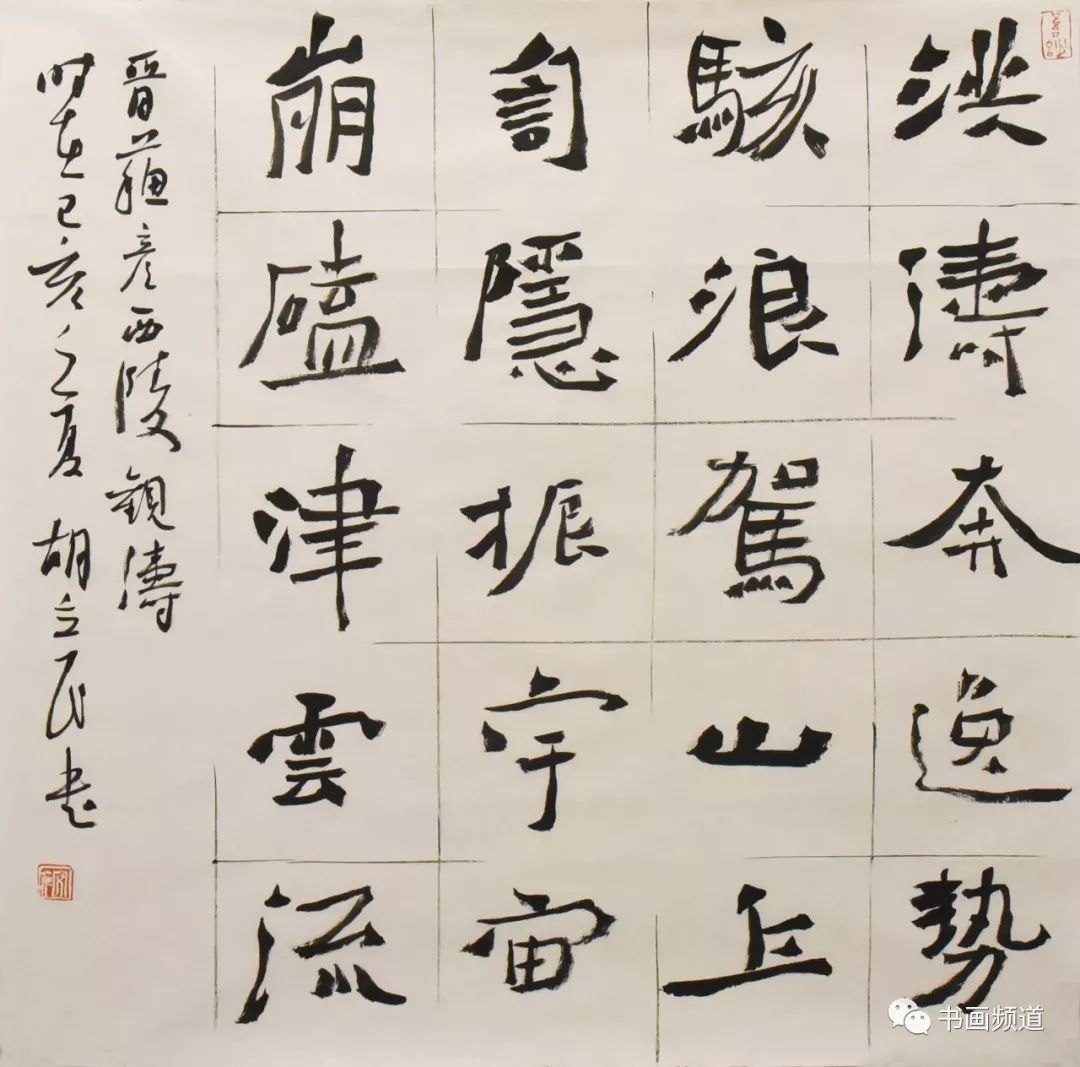 洪濤奔逸勢
駭浪駕山丘
訇隱振宇宙
崩磕津雲流
晋蘓彦西陵觀濤
时在己亥之夏 胡立民书
书画频道